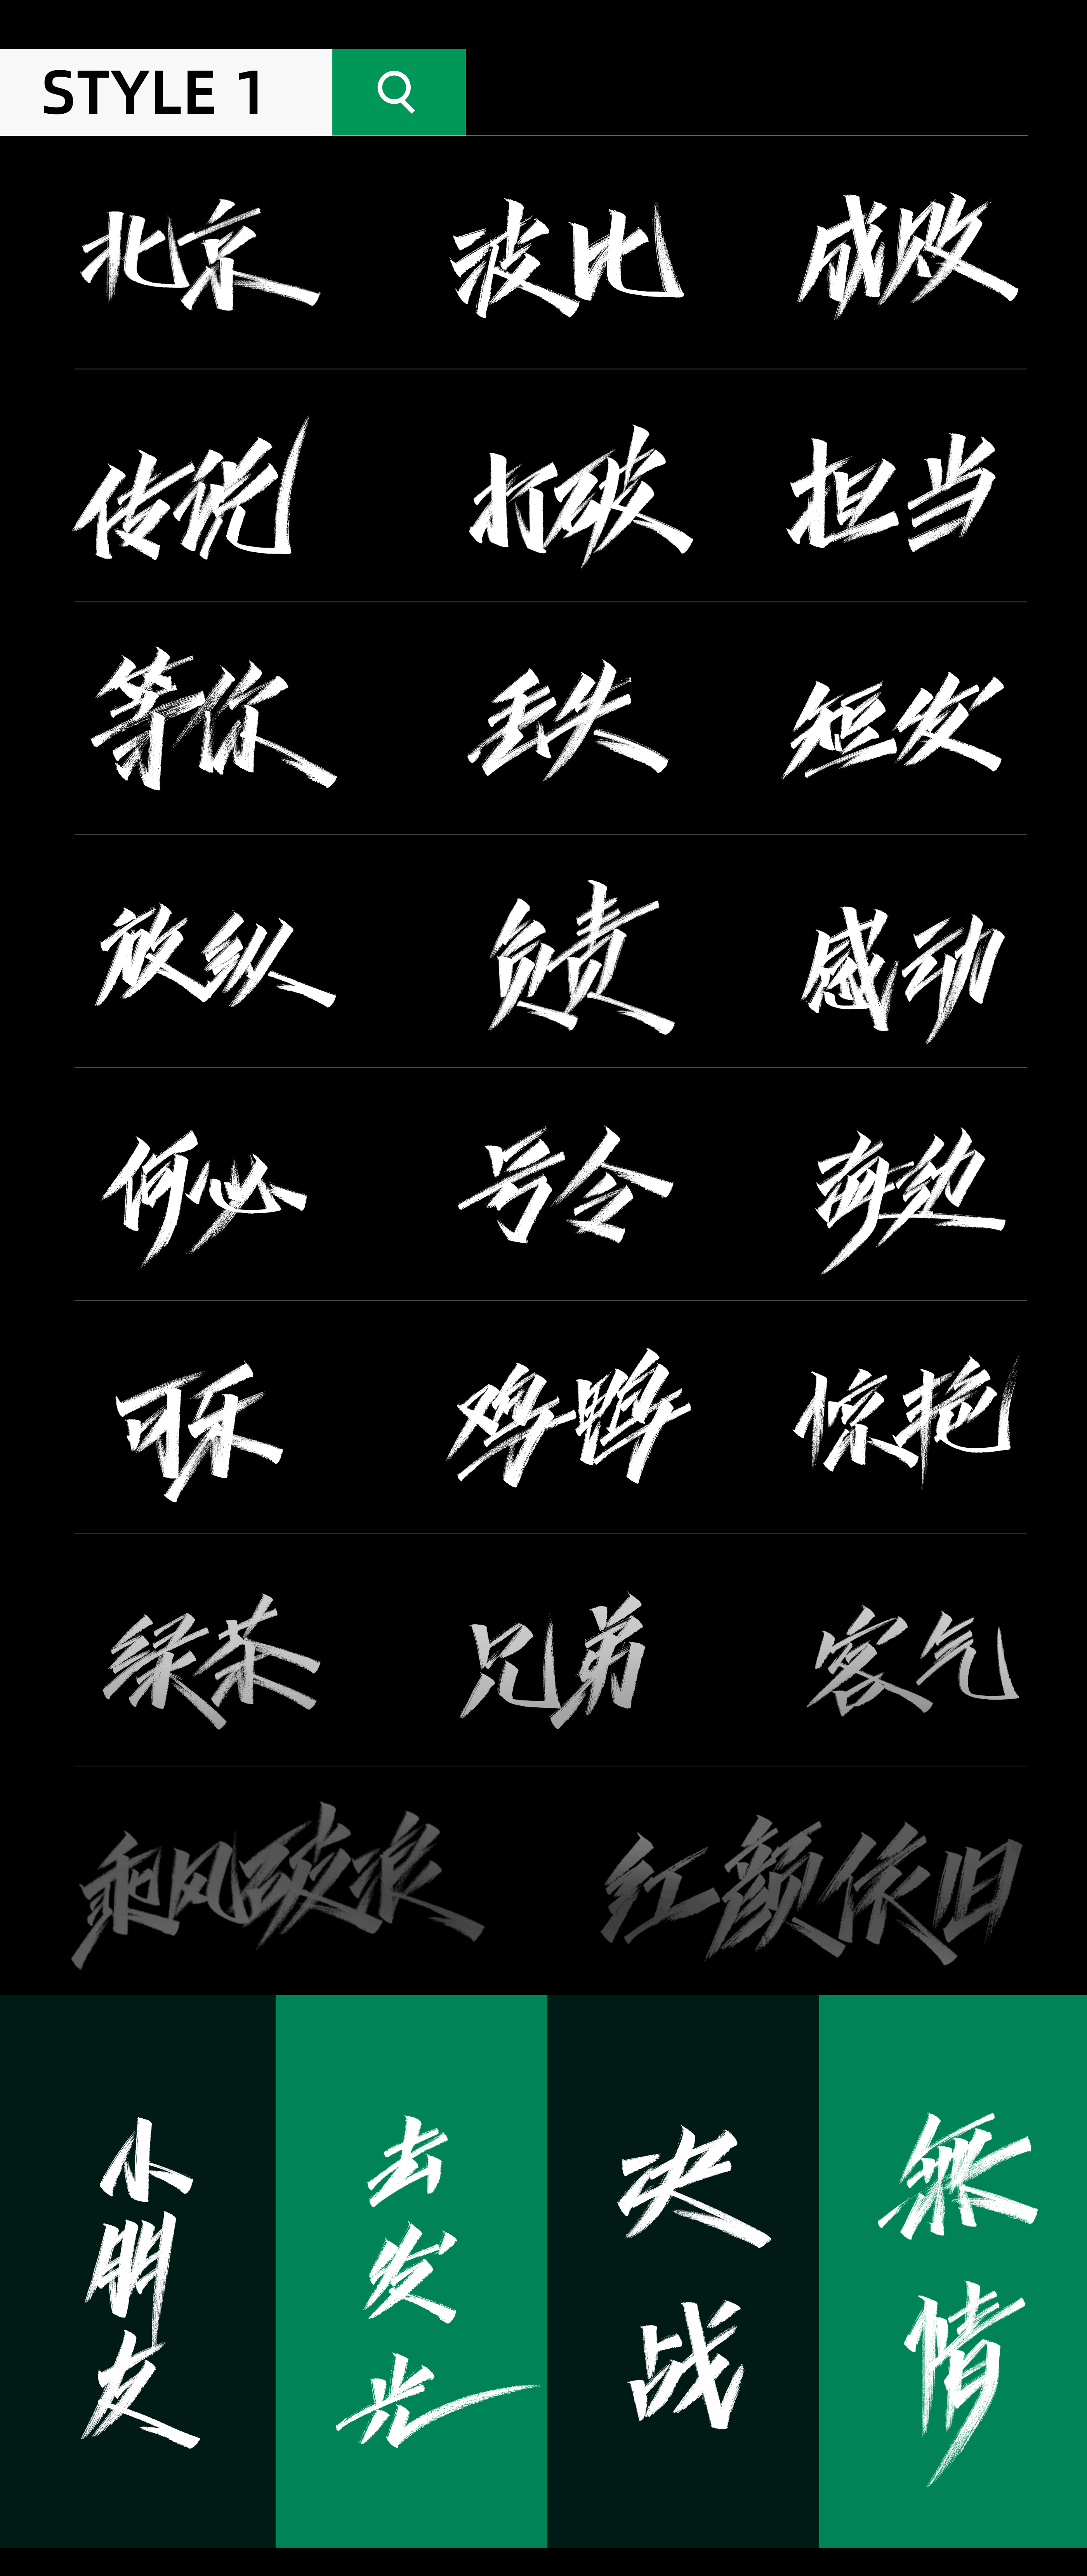 STYLE 1
北京 波比 成败
传说 打破 担当
等你 丢失 短发
放纵 负责 感动
何必 号令 海边
可乐 鸡鸭 惊艳
绿茶 兄弟 客气
乘风破浪 红颜依旧
小朋友
去发光
决战
無情